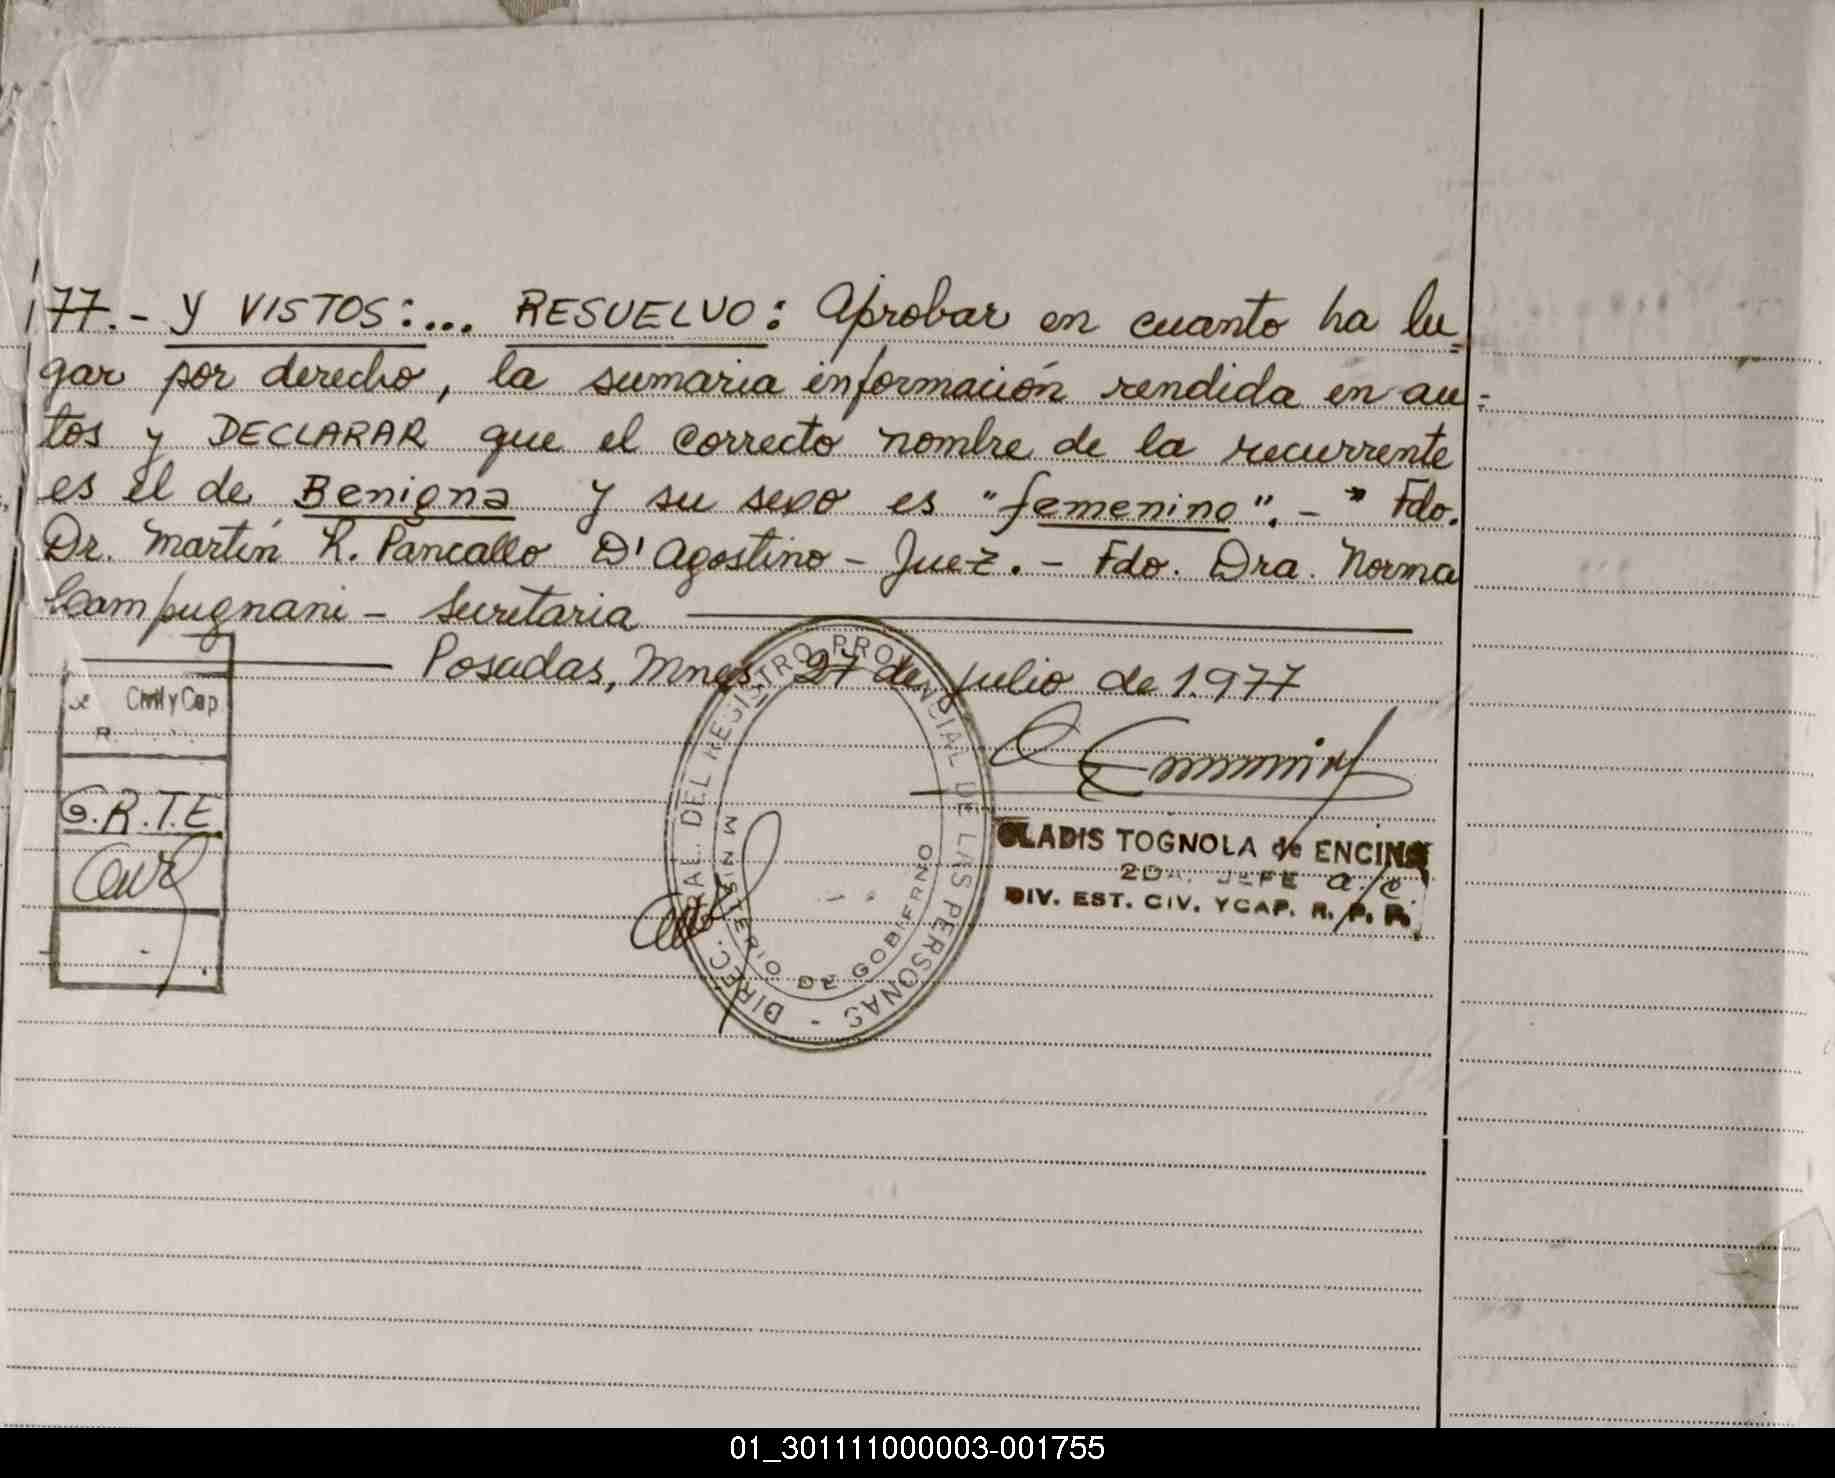 77.- Y VISTOS:... RESUELVO: Aprobar en cuanto ha lu=
gar por derecho, la sumaria información rendida en au=
tos y DECLARAR que el correcto nombre de la recurrente
es el de Benigna y su sexo es "femenino".-" Fdo.
Dr. Martín R. Pancallo D'Agostino - Juez.- Fdo. Dra. Norma
Campugnani - Secretaria
Posadas, Mnes. 27 de julio de 1.977
DIREC. GRAL. DEL REGISTRO PROVINCIAL DE LAS PERSONAS -
MINISTERIO DE GOBIERNO
Civil y Cap
R.
G.R.T.E
GLADIS TOGNOLA de ENCINA
2DA. JEFE a/c
DIV. EST. CIV. Y CAP. R. P. P.
01_301111000003-001755